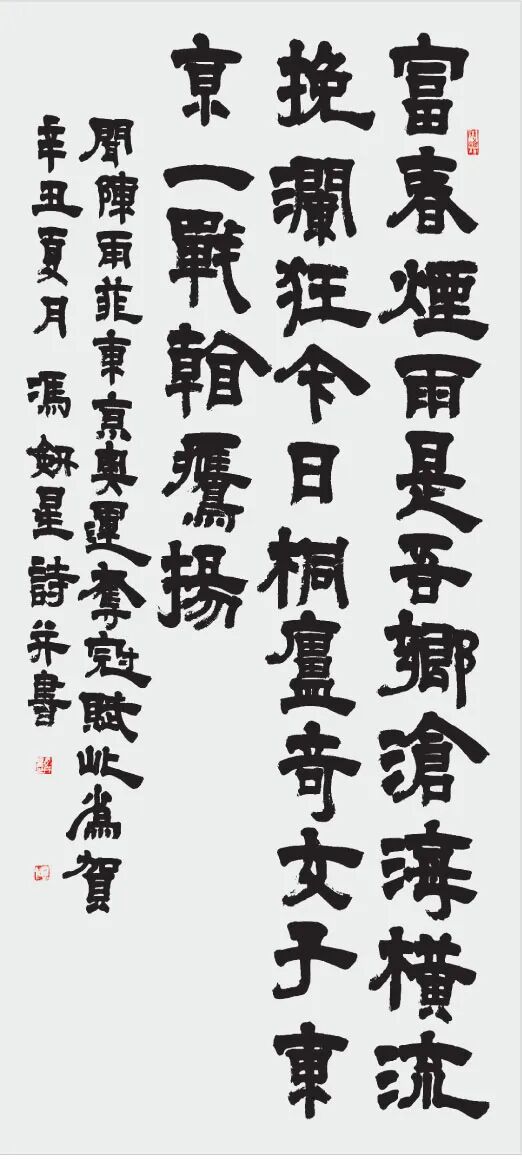 富春煙雨是吾鄉滄海橫流
挽瀾狂今日桐廬奇女子東
京一戰翰鷹揚
聞陳雨菲東京奧運奪冠賦此為賀
辛丑夏月馮妍星詩并書